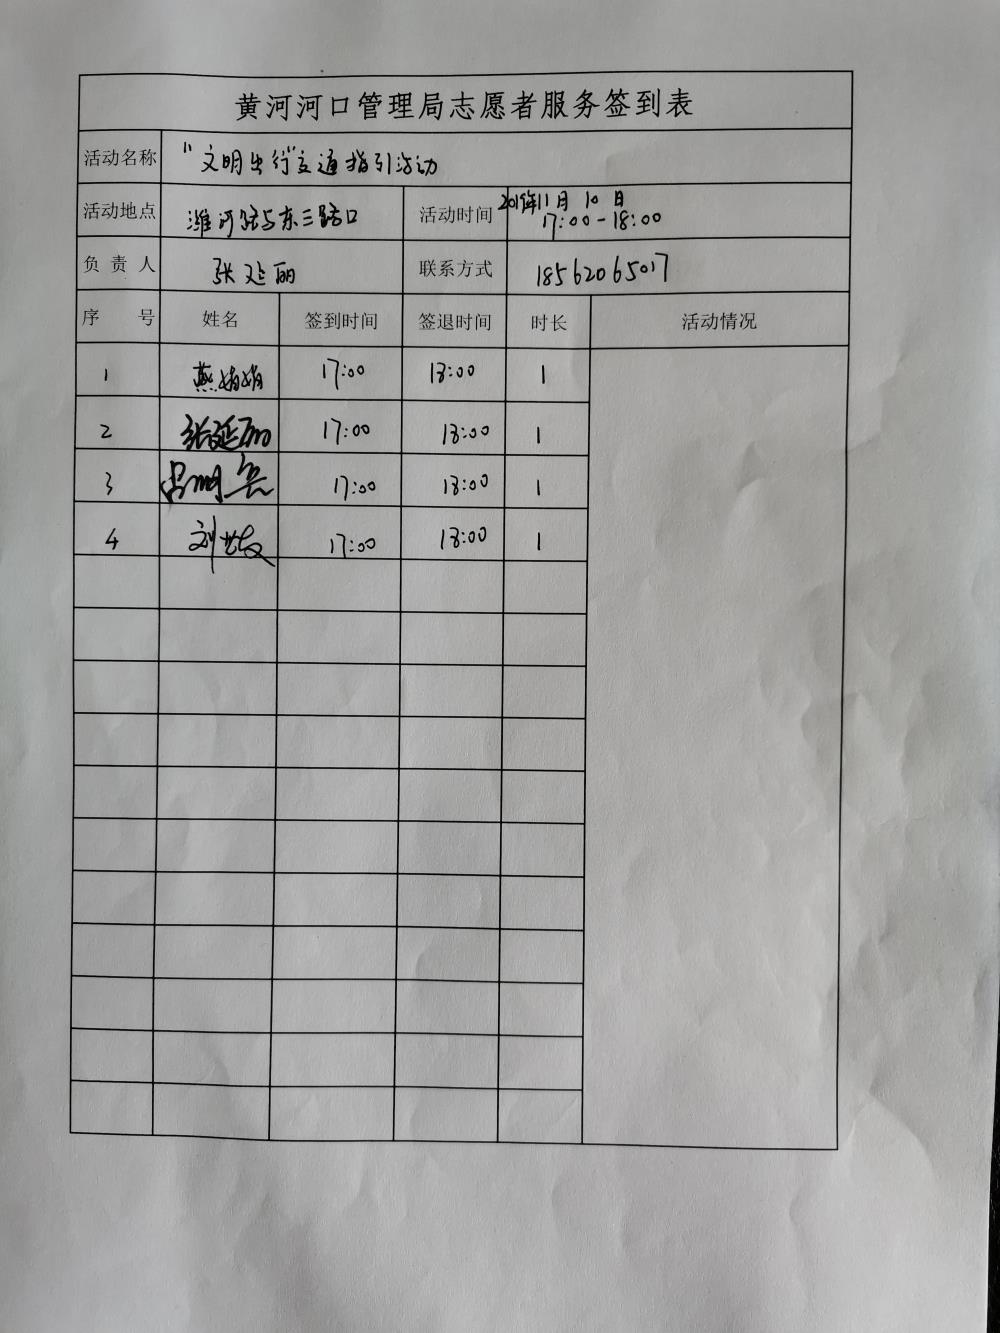 黄河河口管理局志愿者服务签到表
活动名称 "文明出行"交通指引活动
活动地点 潍河路与东三路口 活动时间 2019年11月10日
17:00-18:00
负责人 张延丽 联系方式 18562065017
序号 姓名 签到时间 签退时间 时长 活动情况
1 燕娟娟 17:00 18:00 1
2 张延丽 17:00 18:00 1
3 17:00 18:00 1
4 17:00 18:00 1